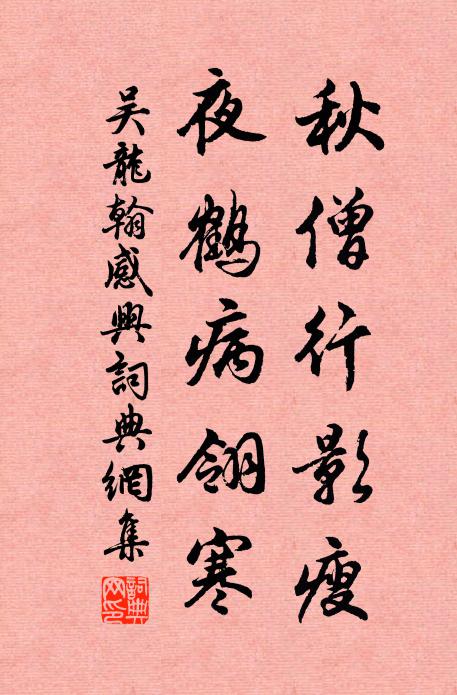 秋僧行影瘦
夜鶴病翎寒
吴龍翰感興詞典網集
詞典網印